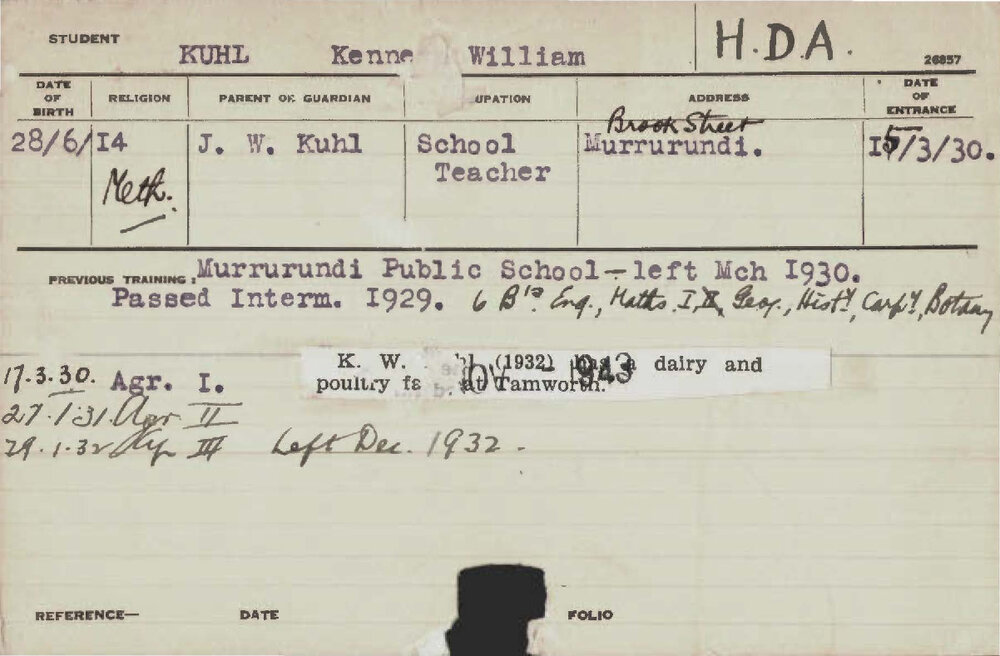 STUDENT KUHL Kenne William H.D.A. 26857
DATE OF BIRTH RELIGION PARENT OR GUARDIAN UPATION ADDRESS DATE OF ENTRANCE
Brook Street
28/6/I4 J. W. Kuhl School Murrurundi. I5/3/30.
Teacher
Meth.
PREVIOUS TRAINING, Murrurundi Public School - left Mch I930.
Passed Interm. I929. 6 B's. Eng., Maths. I, II, Geog., Hist'y, Carp'y, Botany
K. W. (1932) has a dairy and
17.3.30. Agr. I.
poultry fa at Tamworth. 943
27.1.31. Agr II
29.1.32 III Left Dec. 1932.
REFERENCE— DATE FOLIO